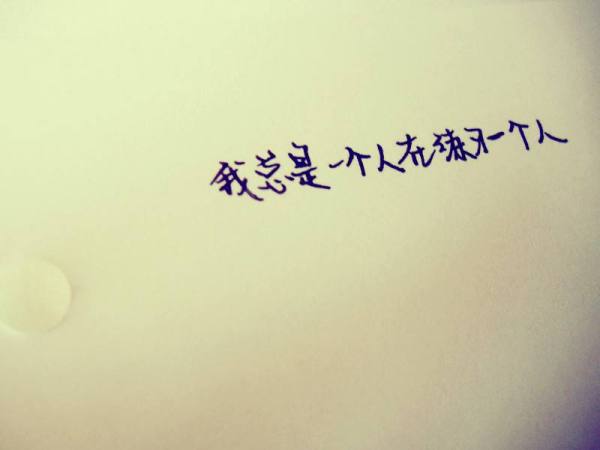 我总是一个人在练习一个人